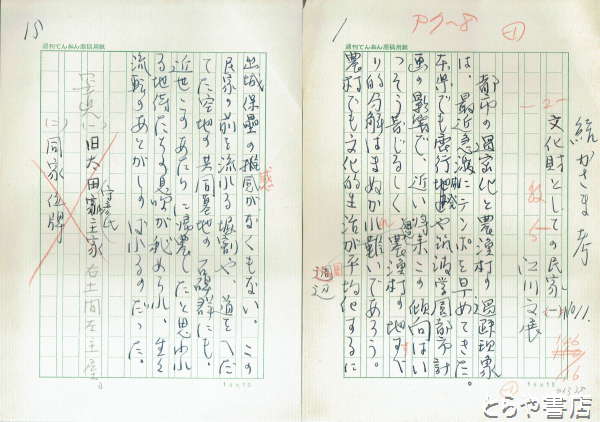 1
アク〜8
週刊てんおん原稿用紙
続かさま考
文化財としての民家(一)
江川文展
都市の過密化と農漁村の過疎現象
は、最近急激にテンポを早めてきた。
本県でも鹿行地域や筑波学園都市計
画の影響で、近い将来この傾向はい
っそう著じるしく、農漁村の地すべ
り的分解はまぬがれ難いであろう。
農村でも文化的生活が平均化するに
週辺
14×10
15
週刊てんおん原稿用紙
出城保塁の推感がなくもない。この
民家の前を流れる堀割や、道をへだ
てた空地の共同墓地の石碑群にも、
近世このあたりに帰農したと思われ
る地侍たちの息吹が秘められ、生々
流転のあとがしのばれるのだった。
写真(一)旧太田家主家 右土間左主屋。
(二)同家位牌
14×10
とらや書店